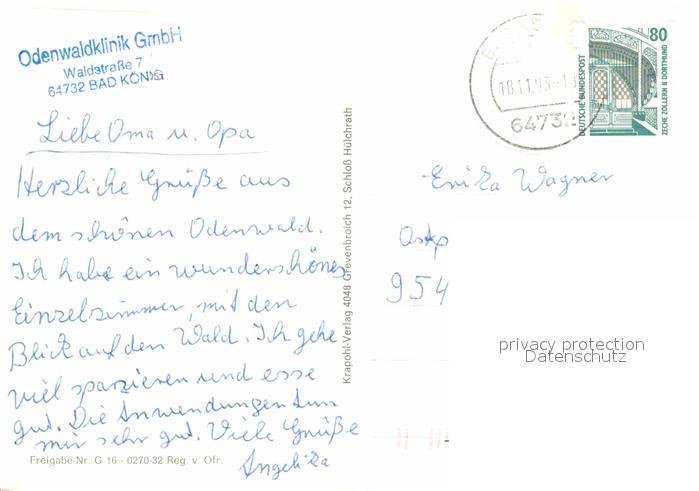 Odenwaldklinik GmbH
Waldstraße 7
64732 BAD KÖNIG
Liebe Oma u. Opa
Herzliche Grüße aus
dem schönen Odenwald.
Ich habe ein wunderschönes
Einzelzimmer, mit den
Blick auf den Wald. Ich gehe
viel spazieren und esse
gut. Die Anwendungen tun
mir sehr gut. Viele Grüße
Angelika
Freigabe-Nr. G 16 - 0270-32 Reg. v. Ofr.
Krapohl-Verlag 4048 Grevenbroich 12, Schloß Hülchrath
18.11.93-1
64732
80
DEUTSCHE BUNDESPOST
ZECHE ZOLLERN II DORTMUND
Erika Wagner
954
privacy protection
Datenschutz